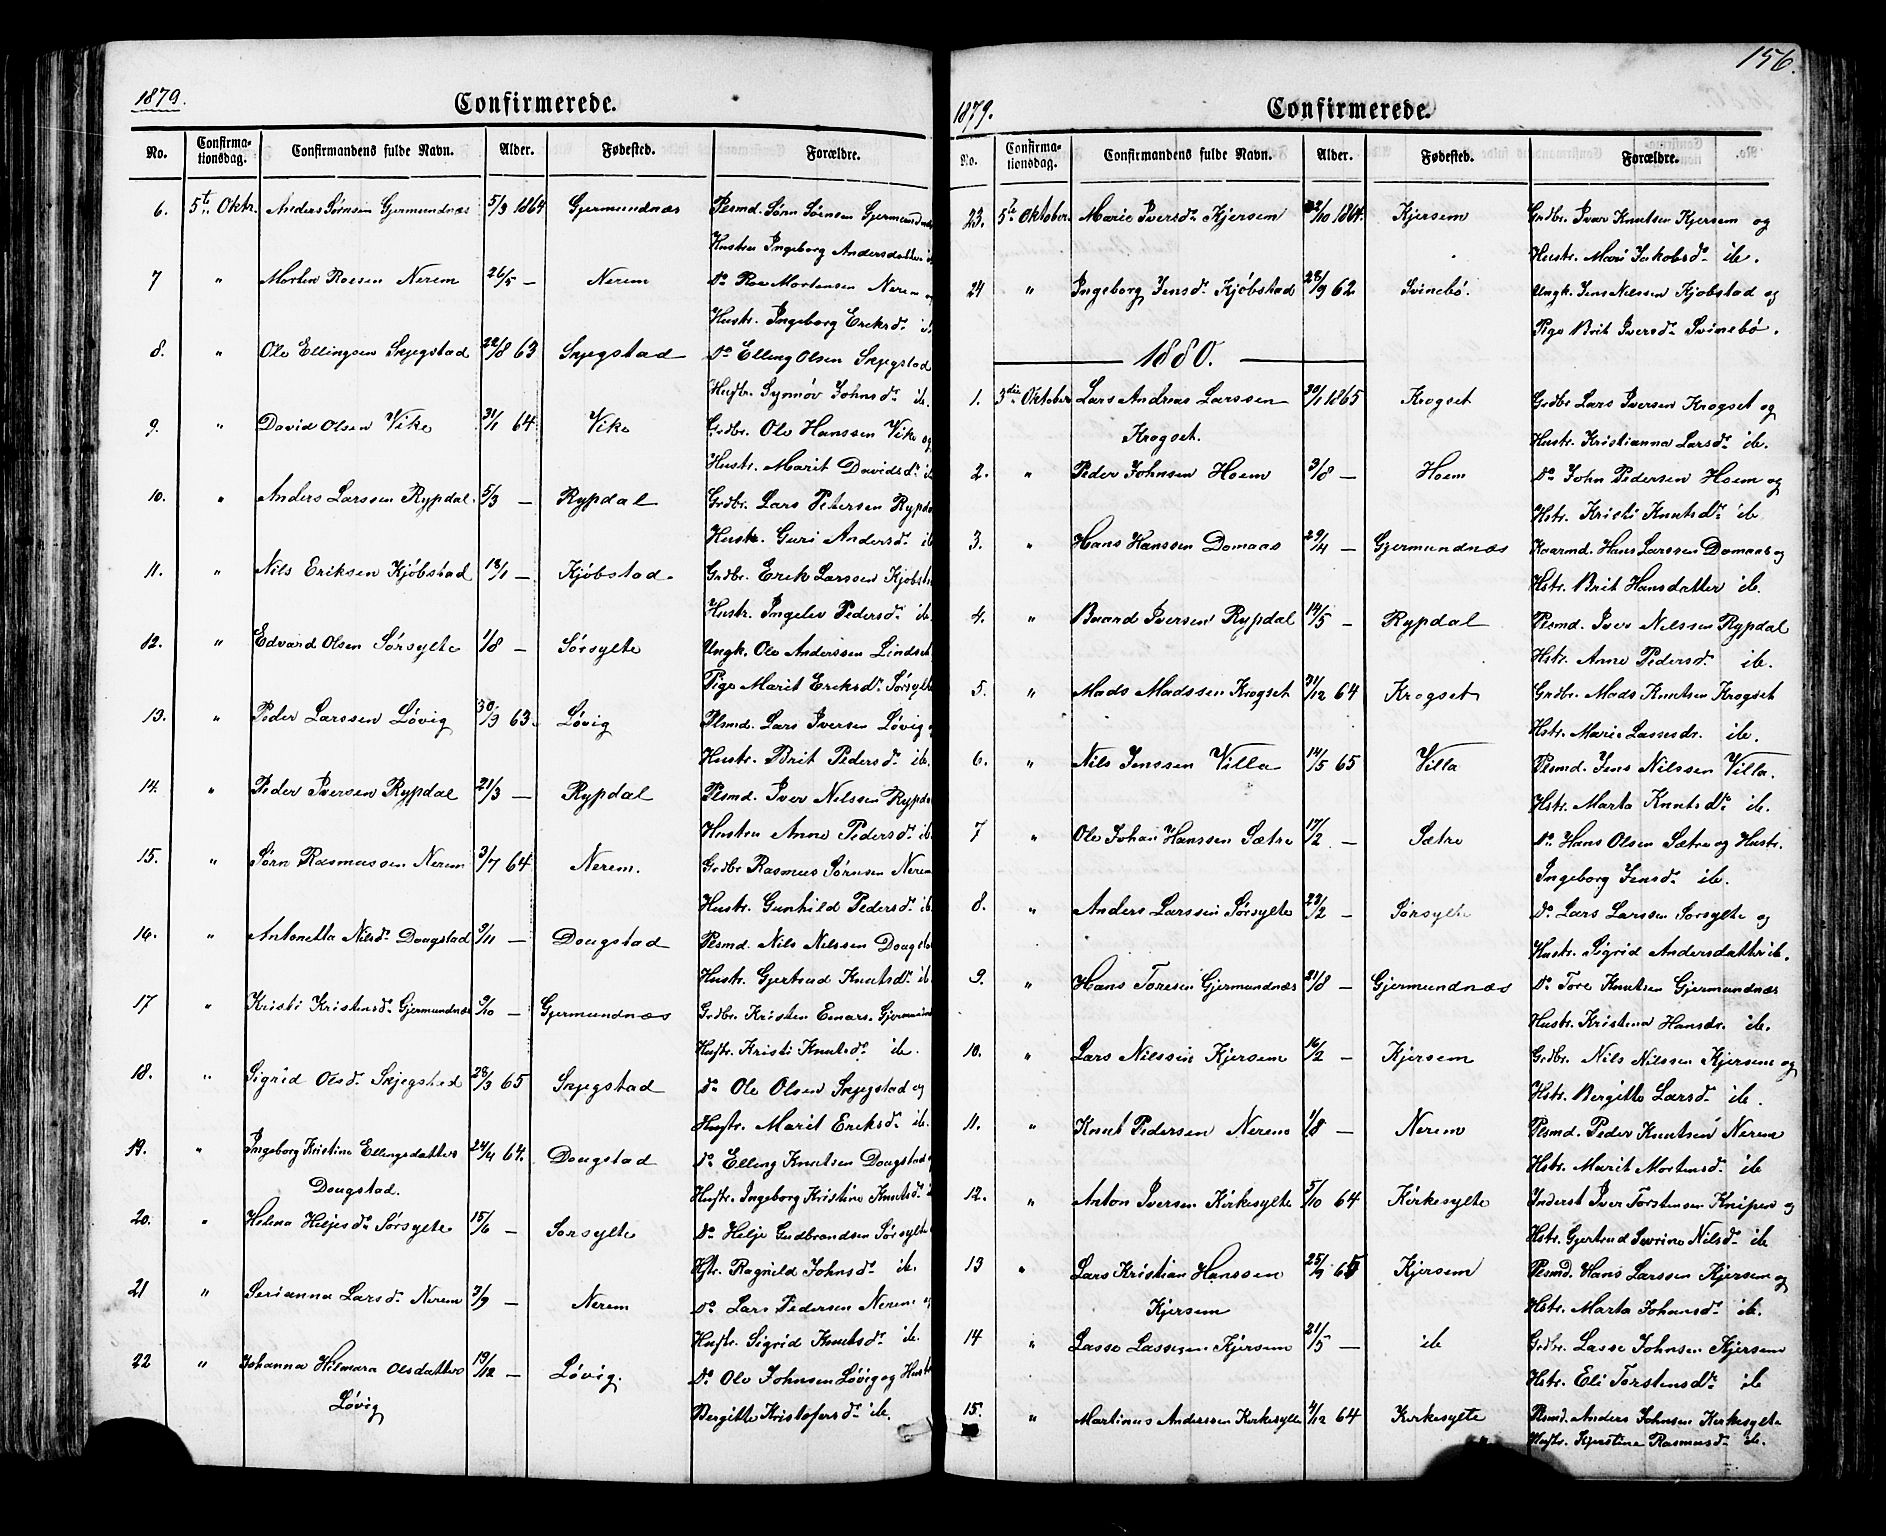 1879.
Confirmerede.
No. Confirma-tionsdag. Confirmandens fulde Navn. Alder. Fødested. Forældre.
6. 5te Oktr. Anders Sørnsen Gjermundnæs 5/3 1864 Gjermundnæs Plsmd. Sørn Sørnsen Gjermundnæs
Hustru Ingeborg Andersdatter
7 " Morten Roesen Nerem 26/5 — Nerem Do Roe Mortensen Nerem og
Hustr. Ingeborg Eriksd.
8. " Ole Ellingsen Skjegstad 22/8 63 Skjegstad Do Elling Olsen Skjegstad
Hustr. Synnøv Johnsd. ib.
9. " David Olsen Vike 31/1 64 Vike Grdbr. Ole Hanssen Vike og
Hustr. Marit Davidsd. ib
10. " Anders Larssen Rypdal. 5/3 — Rypdal Grdbr. Lars Petersen Rypda
Hustr. Guri Andersd. ib
11. " Nils Eriksen Kjøbstad 18/1 — Kjøbstad Grdbr. Erik Larssen Kjøbst
Hustr. Ingelev Pedersd. ib.
12. " Edvard Olsen Sørsylte 1/8 — Sørsylte Ungk. Ole Anderssen Lindset
Pige Marit Eriksd. Sørsylte
13. " Peder Larssen Løvig 30/3 63. Løvig Plsmd. Lars Iversen Løvig
Hustr. Brit Pedersd. ib.
14. " Peder Iversen Rypdal 21/3 — Rypdal Plsmd. Iver Nilssen Rypda
Hustru Anne Pedersd. ib.
15. " Sørn Rasmussen Nerem 3/7 64 Nerem. Grdbr Rasmus Sørnsen Nerem
Hustr. Gunhild Pedersd. ib.
16. " Antonetta Nilsd. Dougstad 9/11 — Dougstad Plsmd. Nils Nilssen Dougsta
Hustr. Gjertrud Knutsd. ib.
17 " Kristi Kristensd. Gjermundnæs 9/10 — Gjermundnæs Grdbr. Kristen Einars. Gjermund
Hustr. Kristi Knutsd. ib.
18. " Sigrid Olsd. Skjegstad 28/3 65 Skjegstad Do Ole Olsen Skjegstad og
Hustr. Marit Eriksd. ib.
19. " Ingeborg Kristine Ellingsdatter 24/4 64. Dougstad Do Elling Knutsen Dougstad
Dougstad. Hustr. Ingeborg Kristine Knutsd.
20. " Helena Heljesd. Sørsylte 15/6 — Sorsylte Do Helje Gudbrandsen Sørsylte
Hstr. Ragnild Johnsd. ib.
21 " Serianna Larsd. Nerem 7/9 — Nerem Do Lars Pedersen Nerem
Hustr. Sigrid Knutsd. ib.
22 " Johanna Hilmara Olsdatter 19/12 — Løvig. Do Ole Johnsen Løvig og Hustr
Løvig Bergitte Kristofersd. ib.
156.
1879.
Confirmerede.
No. Confirma-tionsdag. Confirmandens fulde Navn. Alder. Fødested. Forældre.
23. 5te Oktober Marie Iversd. Kjersem 22/10 1864. Kjersem Grdbr. Ivar Knutsen Kjersem og
Hustr. Mari Jakobsd. ib.
24 " Ingeborg Jensd. Kjøbstad 28/9 62 Svinebø. Ungk. Jens Nilssen Kjøbstad og
Pige Brit Iversd. Svinebø.
1880.
1. 3die Oktober Lars Andreas Larssen 30/1 1865 Krogset Grdbr Lars Iversen Krogset og
Krogset. Hustr. Kristianna Larsd. ib.
2. " Peder Johnsen Hoem 3/8 — Hoem Do John Pedersen Hoem og
Hstr. Kristi Knutsd. ib
3. " Hans Hanssen Domaas 29/4 — Gjermundnæs Kaarmd. Hans Larssen Domaas og
Hstr. Brit Hansdatter ib.
4. " Baard Iversen Rypdal 14/5 — Rypdal Plsmd. Iver Nilssen Rypdal
Hstr. Anne Pedersd. ib.
5. " Mads Madssen Krogset 31/12 64 Krogset Grdbr. Mads Knutsen Krogset
Hstr. Marie Lassesdr. ib.
6. " Nils Jenssen Villa 14/5 65 Villa Plsmd. Jens Nilssen Villa.
Hstr. Marta Knutsd. ib.
7 " Ole Johan Hanssen Sætre 17/2 — Sætre Do Hans Olsen Sætre og Hustr.
Ingeborg Jensd. ib.
8. " Anders Larssen Sørsylte 23/2 — Sørsylte Do Lars Larssen Sorsylte og
Hustr. Sigrid Andersdatter ib.
9. " Hans Toresen Gjermundnæs 21/8 — Gjermundnæs Do Tore Knutsen Gjermundnæs
Hustr. Kristina Hansdr. ib.
10. " Lars Nilssen Kjersem 16/2 — Kjersem Grdbr. Nils Nilssen Kjersem og
Hstr. Bergitte Larsd. ib.
11. " Knut Pedersen Nerem 1/8 — Nerem Plsmd. Peder Knutsen Nerem
Hstr. Marit Mortensd. ib
12. " Anton Iversen Kirkesylte 5/10 64 Kirkesylte Inderst Iver Torstensen Knipen og
Hstr. Gjertrud Severine Nilsd. ib
13 " Lars Kristian Hanssen 25/9 65 Kjersem Plsmd. Hans Larssen Kjersem og
Kjersem Hstr. Marta Johansd. ib.
14 " Lasse Lassesen Kjersem 21/5 — ib Grdbr. Lasse Johnsen Kjersem
Hstr. Eli Torstensd. ib
15. " Martinus Anderssen Kirkesylte 4/12 64 Kirkesylte Plsmd. Anders Johnsen Kirkesylte
Hustr. Kjerstine Rasmusd. ib.